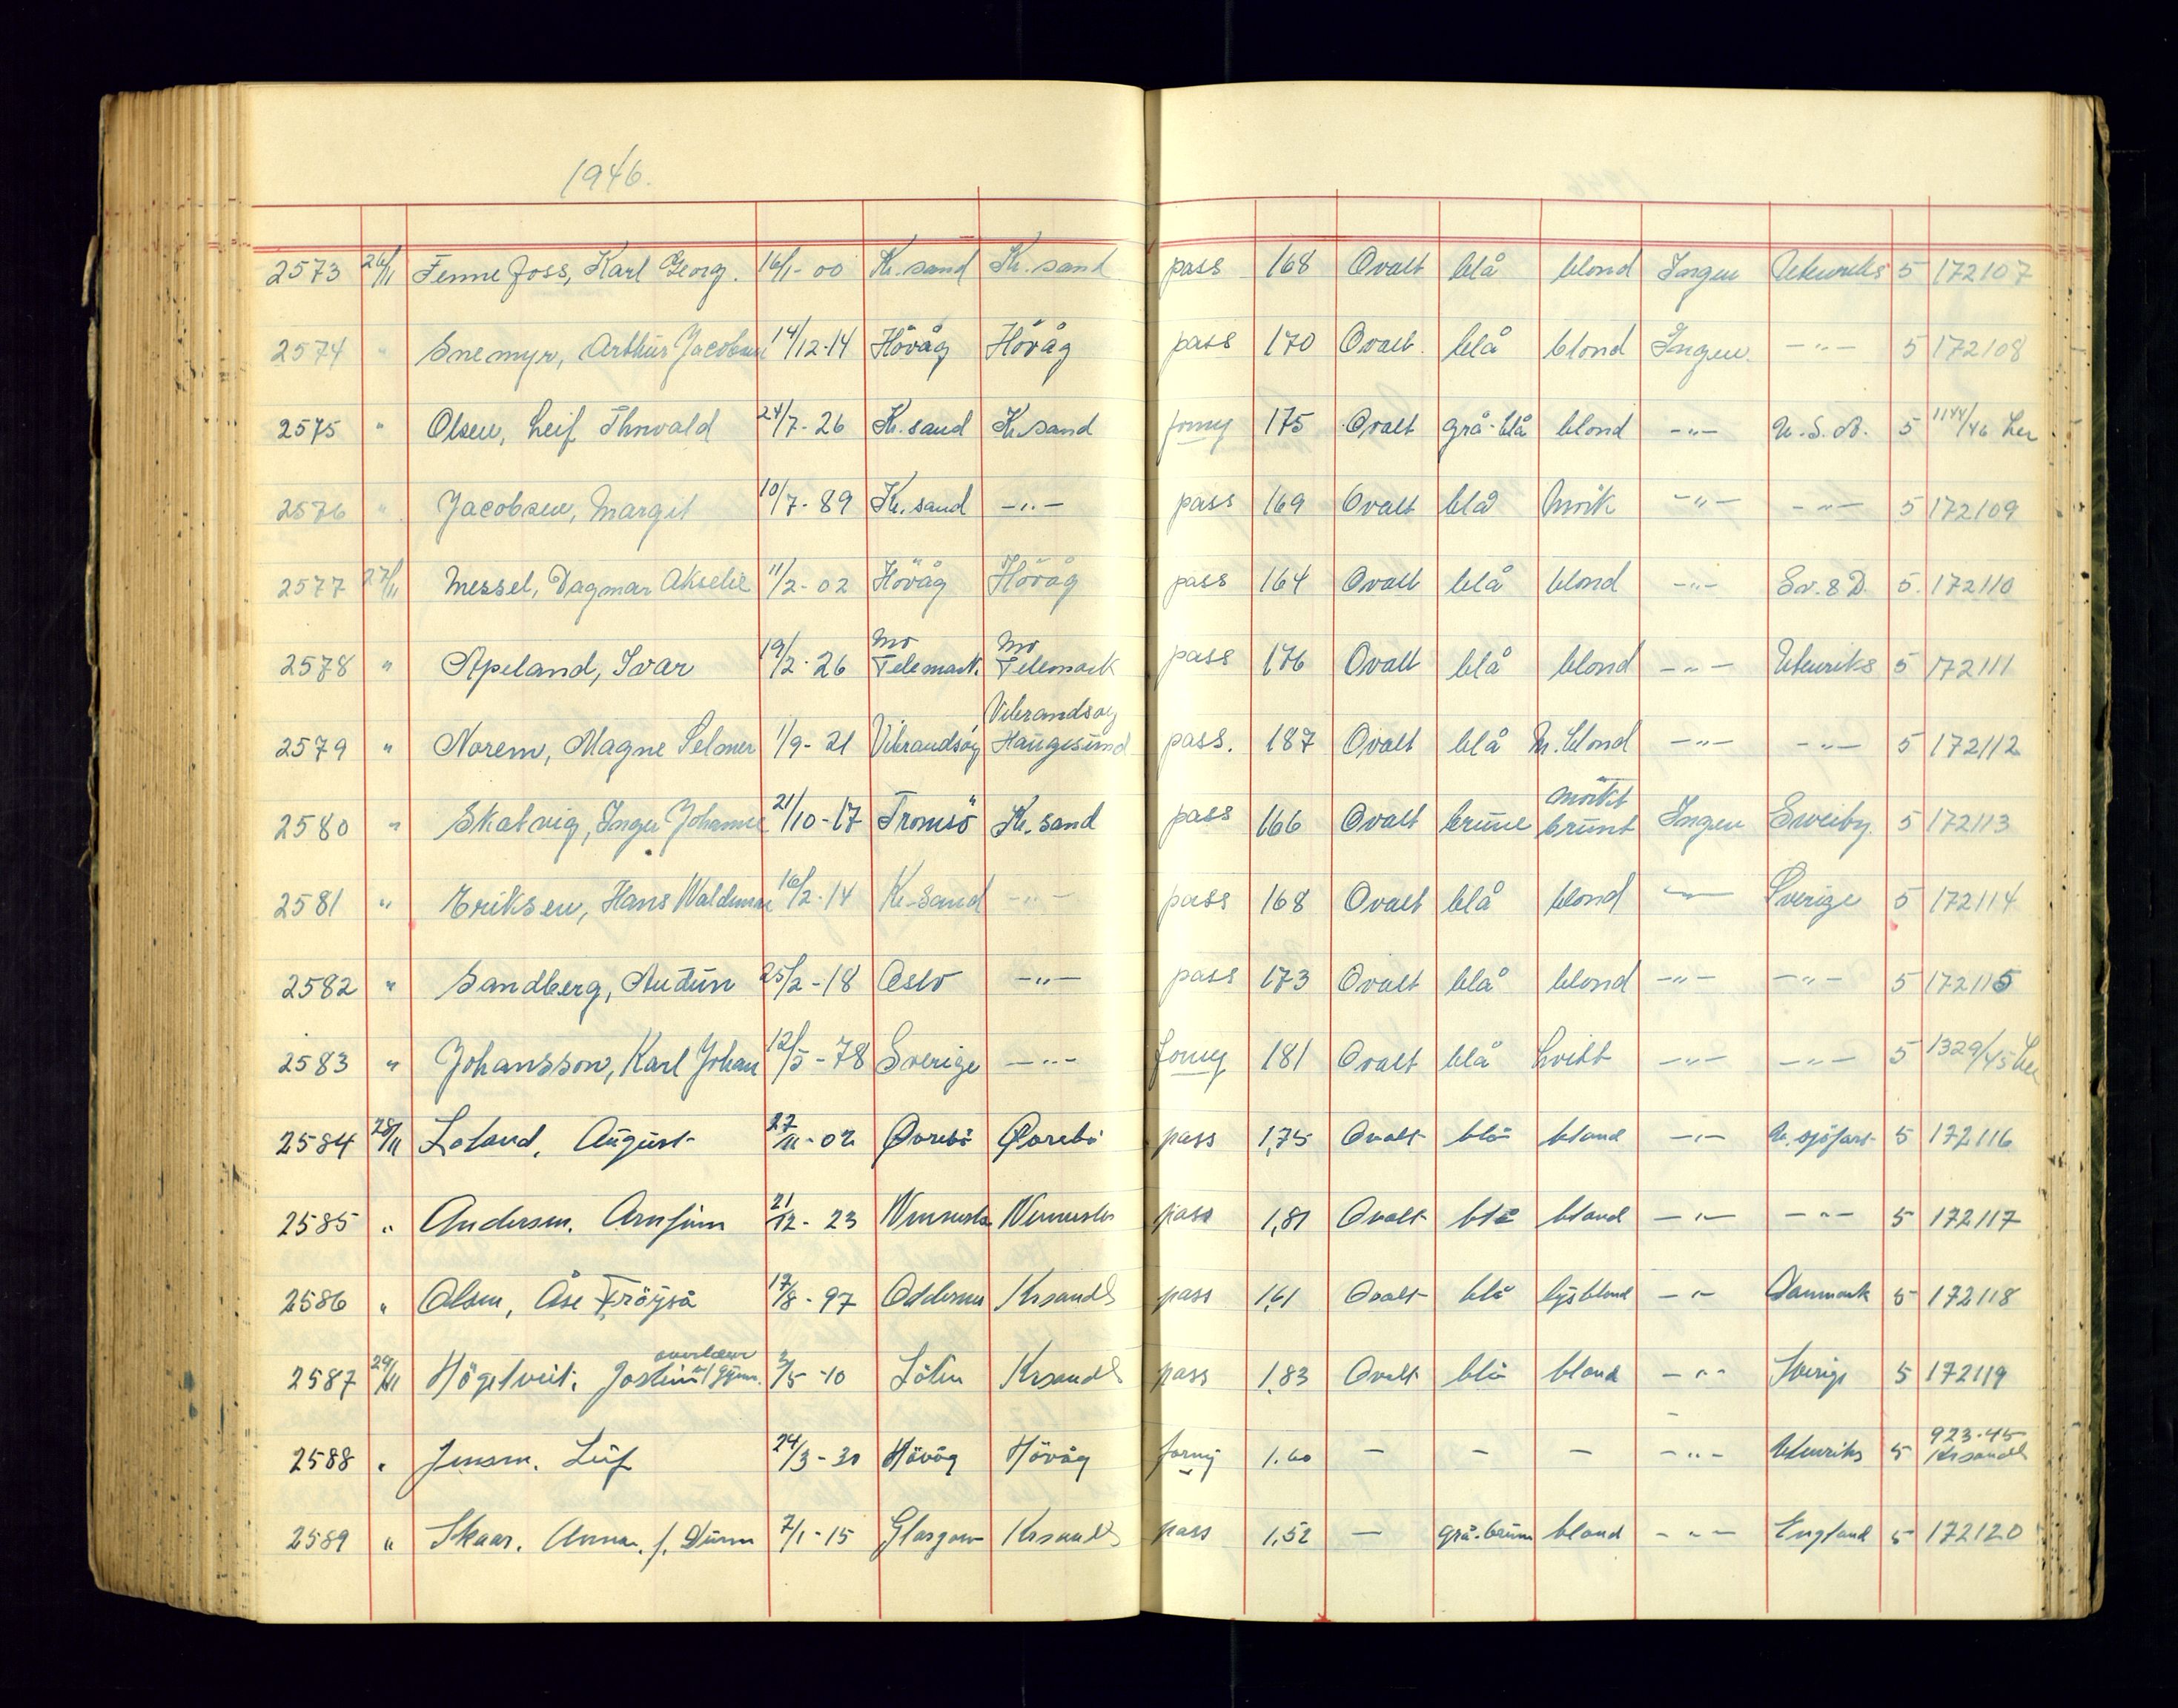 1946.
2573 26/11 Fennefoss, Karl Georg. 16/1-00 Kr.sand Kr.sand pass 168 Ovalt blå blond Ingen Utenriks 5 172107
2574 " Snemyr, Arthur Jacobsen 14/12-14 Hövåg Hövåg pass 170 Ovalt blå blond Ingen. -"- 5 172108
2575 " Olsen, Leif Thorvald 24/7-26 Kr.sand Kr.sand forny 175 Ovalt grå-blå blond -"- U.S.A. 5 1144/46 her
2576 " Jacobsen, Margit 10/7-89 Kr.sand -"- pass 169 Ovalt blå mörk -"- -"- 5 172109
2577 27/11 Messel, Dagmar Akselie 11/2-02 Höväg Höväg pass 164 Ovalt blå blond -"- Sv. & D. 5. 172110
2578 " Apeland, Ivar 19/2-26 Mo Telemark. Mo Telemark pass 176 Ovalt blå blond -"- Utenriks 5 172111
Vibrandsöy
2579 " Norem, Magne Selmer 1/9-21 Vibrandsöy Haugesund pass. 187 Ovalt blå M.blond -"- -"- 5 172112
2580 " Skatvig, Inger Johanne 21/10-17 Tromsö Kr.sand pass 166 Ovalt brune mörkt brunt Ingen 5 172113
2581 " Eriksen, Hans Waldemar 16/2-14 Kr-sand -"- pass 168 Ovalt blå blond -"- Sverige 5 172114
2582 " Sandberg, Audun 25/2-18 Oslo -"- pass 173 Ovalt blå blond -"- -"- 5 172115
2583 " Johansson, Karl Johan 12/5-78 Sverige -"- forny 181 Ovalt blå hvitt -"- -"- 5 1329/45 her
2584 28/11 Loland, August 27/11-02 Øvrebö Øvrebö pass 1,75 Ovalt blå blond -"- U. sjöfart 5 172116
2585 " Andersen. Arnfinn 21/12-23 pass 1,81 Ovalt blå blond -"- -"- 5 172117
2586 " Olsen, Åse Fröyså 17/8-97 Oddernes Krsands pass 1,61 Ovalt blå lysblond -"- Danmark 5 172118
overlærer
2587 29/11 Högetveit, 3/5-10 Krsands pass 1,83 Ovalt blå blond -"- Sverige 5 172119
2588 " Jensen. Leif 24/3-30 Höväg Höväg forny 1.60 - - - -"- Utenriks 5 923-45 Krsands
2589 " Skaar. Anna. f. Dunn 7/1-15 Glasgow Krsands pass 1,52 - grå-brun blond -"- England 5 172120